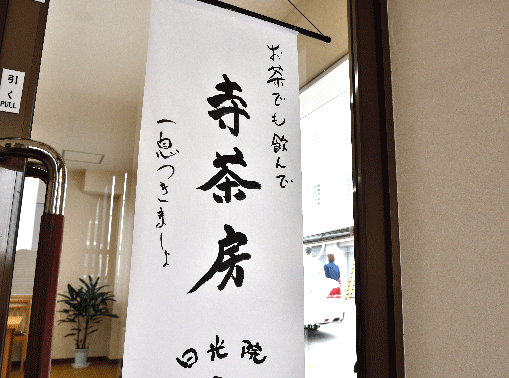 お茶でも飲んで
寺茶房
一息つきましょ
日光院
引く
PULL